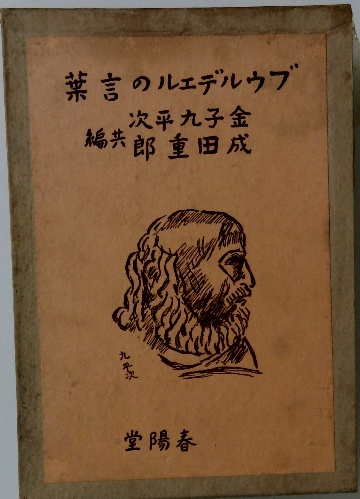 ブウルデエルの言葉
金子九平次
成田重郎
共編
九平次
春陽堂